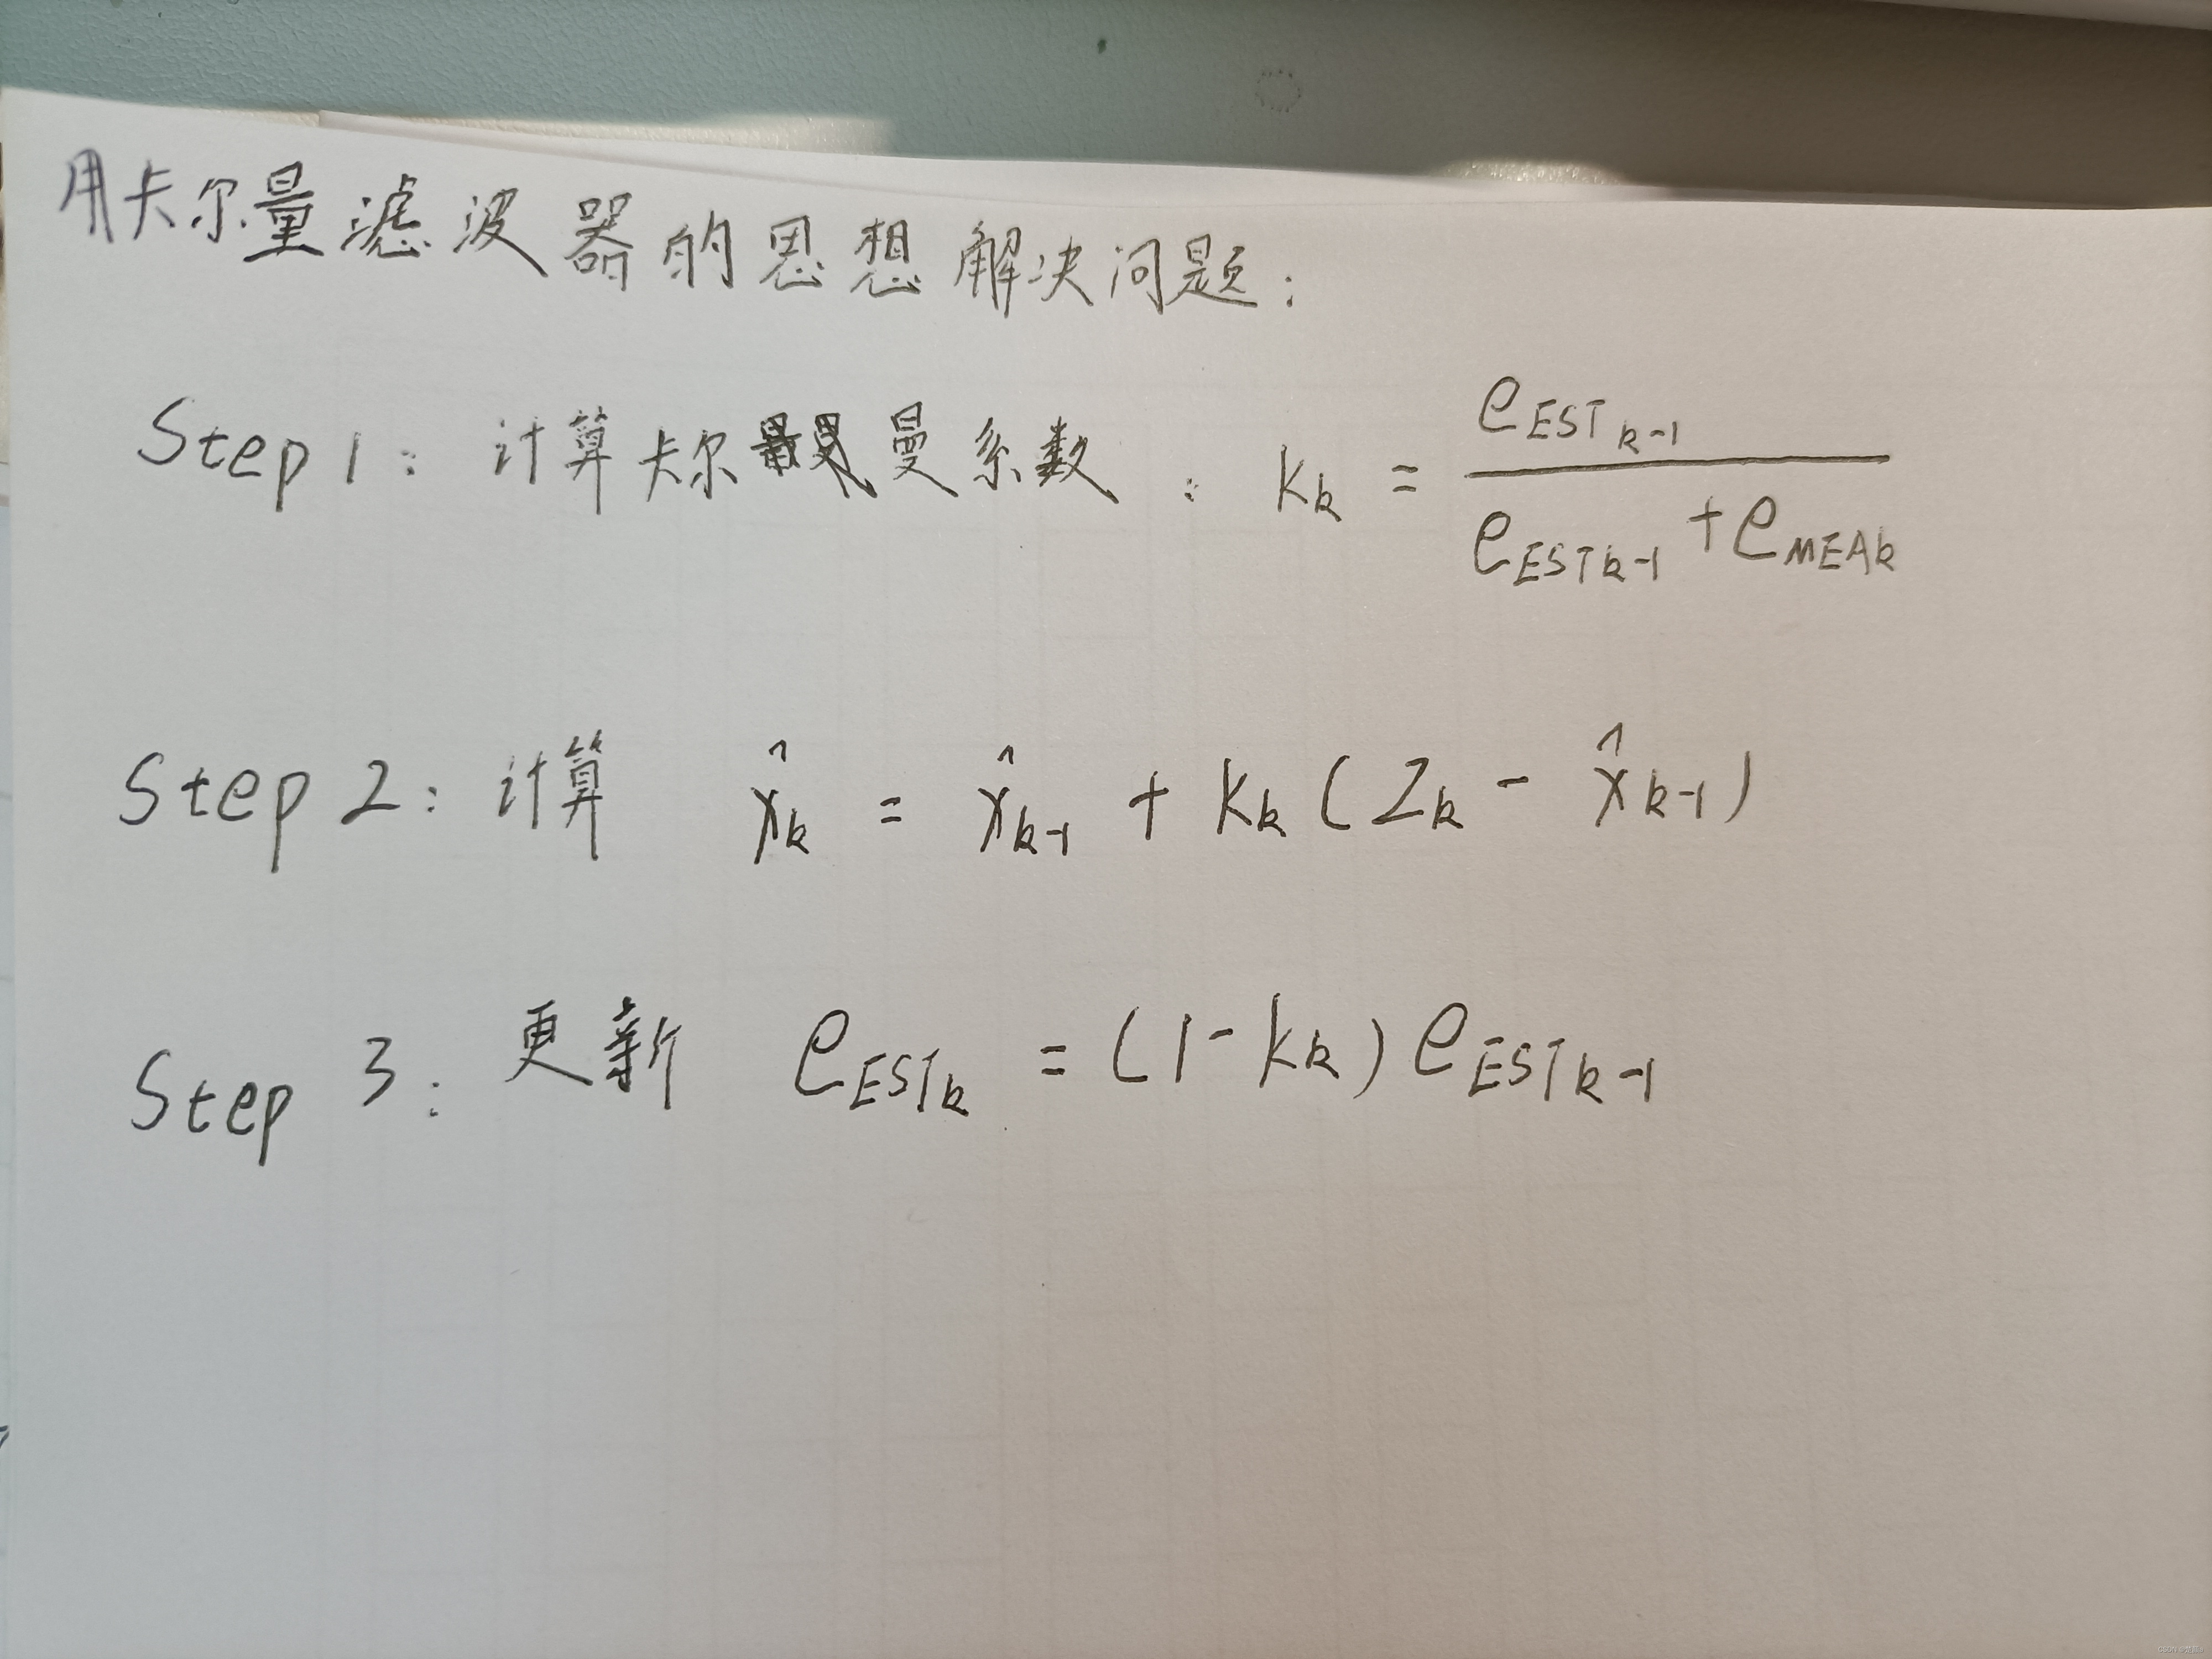 用卡尔量滤波器的思想解决问题：
Step 1：计算卡尔曼系数：K_k = e_{EST_{k-1}} / (e_{EST_{k-1}} + e_{MEA_k})
Step 2：计算 x̂_k = x̂_{k-1} + K_k (Z_k - x̂_{k-1})
Step 3：更新 e_{EST_k} = (1 - K_k) e_{EST_{k-1}}